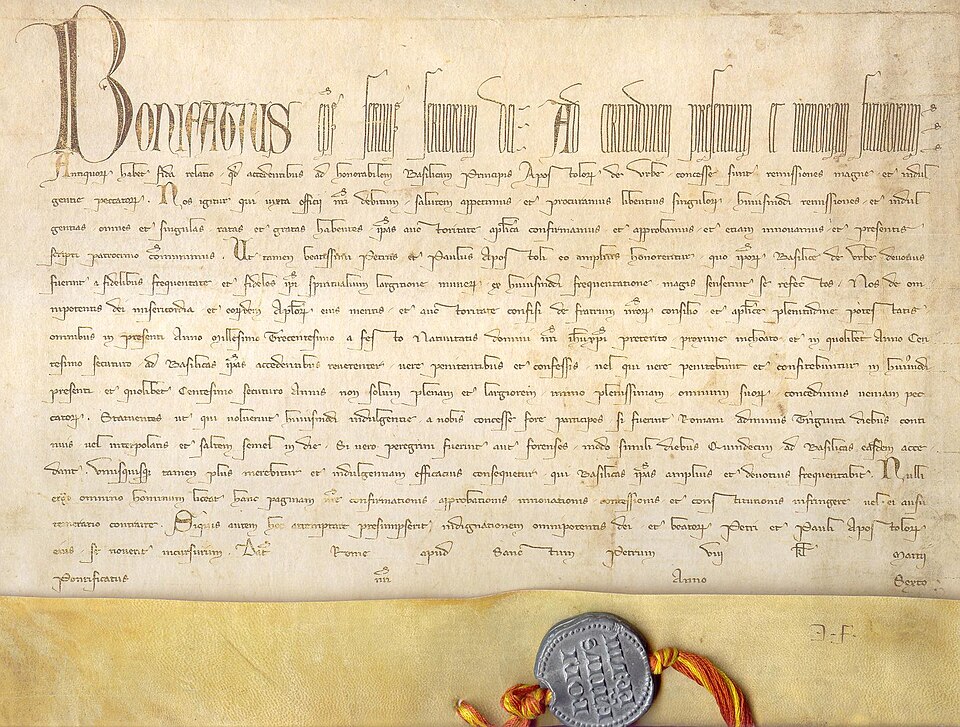 Bonifatius ep̄s seruus seruorum dei · Ad certitudinem presentium et memoriam futurorum
Antiquor̄ habet fida relatio · qd̄ accedentibus ad honorabilem Basilicam Principis Apostolor̄ · de Vrbe concesse sunt remissiones magne · et indul
gentie peccator̄ · Nos igitur qui iuxta officij nr̄i debitum · salutem appetimus et procuramus libentius singulor̄ · huiusmodi remissiones · et indul
gentias omnes et singulas ratas et gratas habentes · ip̄as auctoritate apl̄ica confirmamus et approbamus · et etiam innouamus et presentis
scripti patrocinio cōmunimus · Ut tamen beatissimi Petrus et Paulus Apostoli eo amplius honorentur · quo ip̄or̄ Basilice de Vrbe deuotius
fuerint a fidelibus frequentate · et fideles ip̄i spiritualium largitione muner̄ · ex huiusmodi frequentatione magis senserint se refectos · Nos de om
nipotentis dei misericordia · et eor̄dem Apl̄or̄ · eius meritis · et auctoritate confisi de fratrum nr̄or̄ consilio · et apl̄ice plenitudine potestatis
omnibus in presenti Anno Millesimo Trecentesimo a festo Natiuitatis domini nr̄i ihūxp̄i preterito proxime inchoato · et in quolibet Anno Cen
tesimo secuturo ad Basilicas ip̄as accedentibus reuerenter · uere penitentibus et confessis · uel qui uere penitebunt et confitebuntur in huiusmōi
presenti et quolibet Centesimo secuturo Annis non solum plenam et largiorem · immo plenissimam omnium suor̄ · concedimus ueniam pec
cator̄ · Statuentes ut qui uoluerint huiusmodi indulgentie · a nobis concesse fore participes si fuerint Romani adminus Triginta diebus conti
nuis uel interpolatis et saltem semel in die · Si uero peregrini fuerint aut forenses · modo simili diebus Quindecim · ad Basilicas easdem acce
dant · Vnusquisq̄ tamen plus merebitur et indulgentiam efficacius consequetur · qui Basilicas ip̄as amplius et deuotius frequentabit · Nulli
ergo omnino hominum liceat hanc paginam nr̄e confirmationis approbationis innouationis concessionis et constitutionis infringere uel ei ausu
temerario contraire · Siquis autem hoc attemptare presumpserit · indignationem omnipotentis dei · et beator̄ · Petri et Pauli Apostolor̄
eius se nouerit incursurum · Dat̄ Rome apud Sanctum Petrum viij kl̄ Martij
Pontificatus nr̄i Anno Sexto
A · F ·
BONI
FATIUS
PP VIII